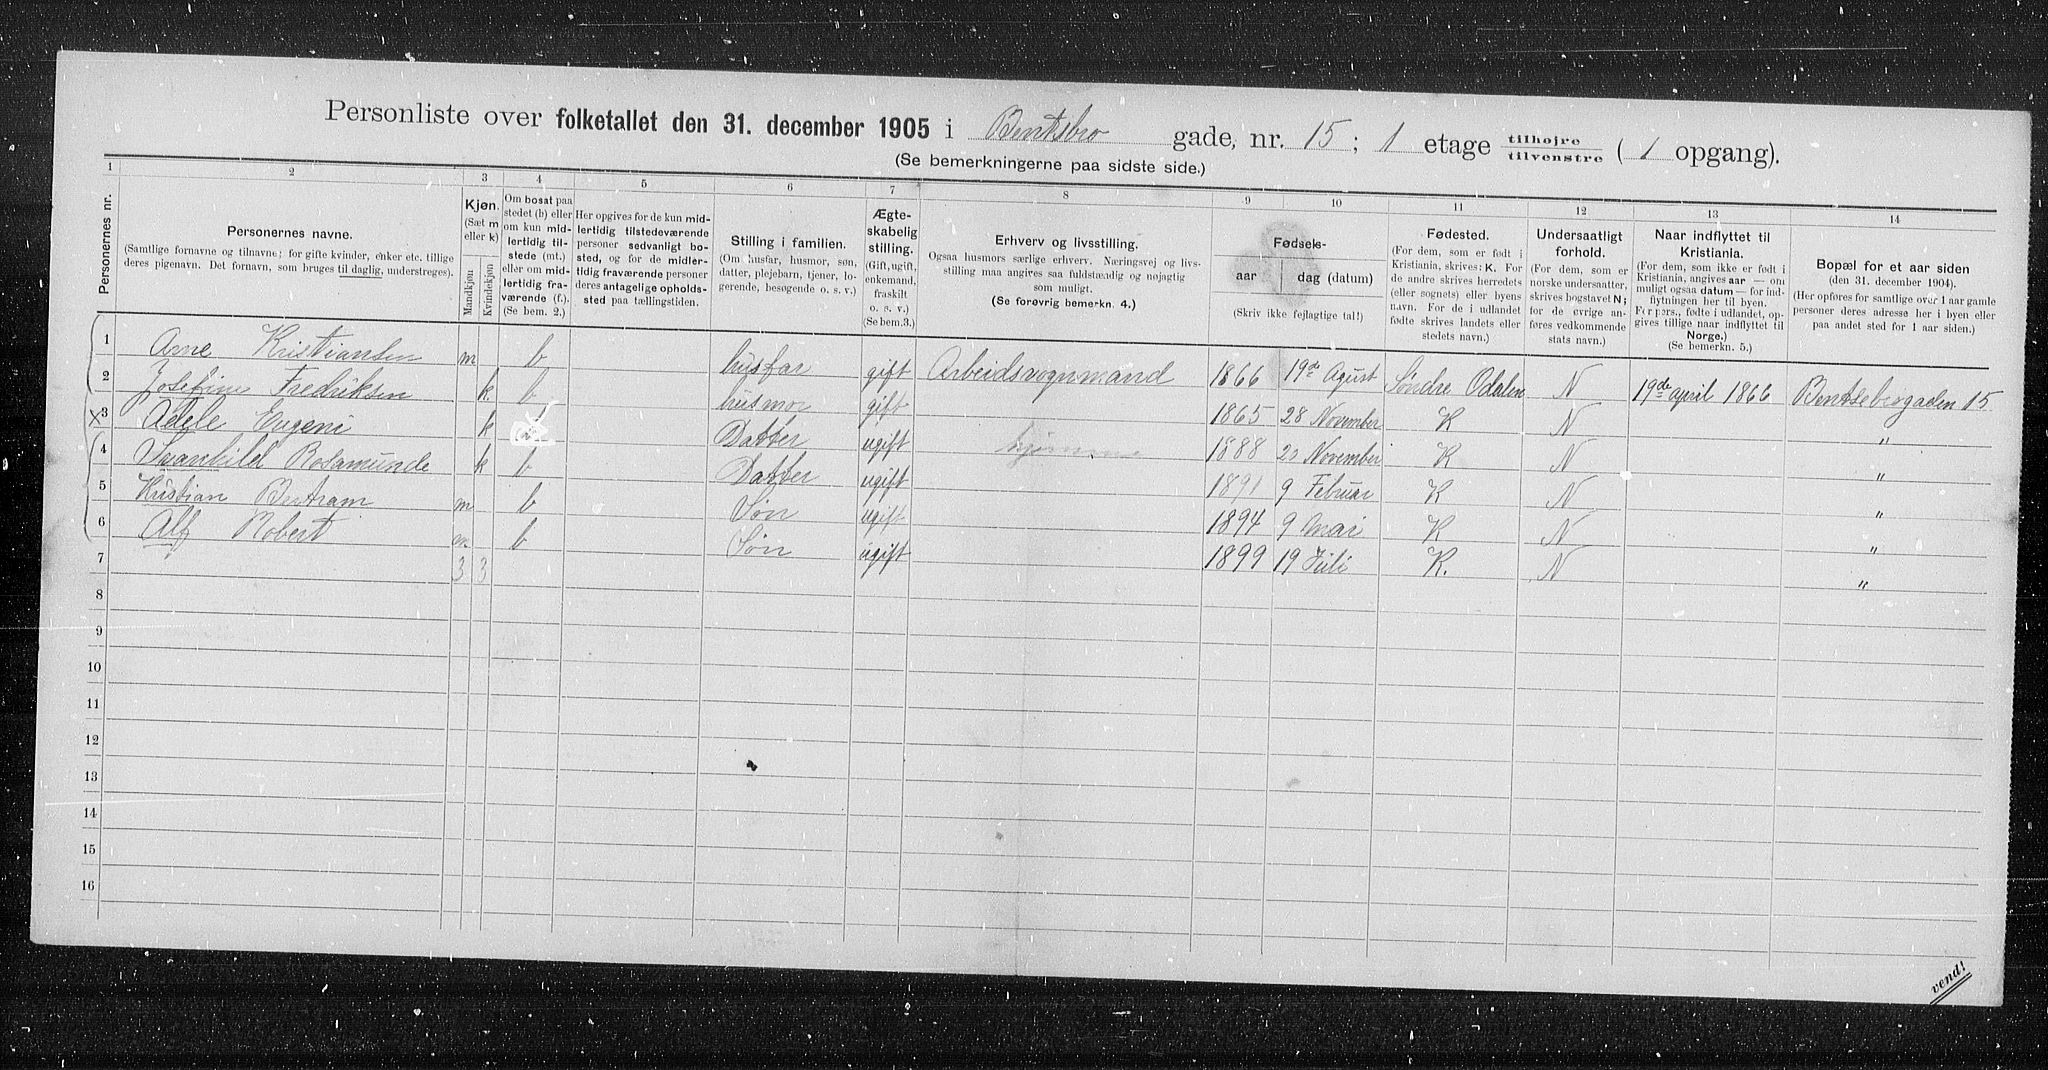 Personliste over folketallet den 31. december 1905 i Bentsbro gade, nr. 15; 1 etage tilhøjre tilvenstre ( 1 opgang).
(Se bemerkningerne paa sidste side.)
1 2 3 4 5 6 7 8 9 10 11 12 13 14
Personernes nr.
Personernes navne.
(Samtlige fornavne og tilnavne; for gifte kvinder, enker etc. tillige
deres pigenavn. Det fornavn, som bruges til daglig, understreges).
Kjøn.
(Sæt m
eller k)
Mandkjøn
Kvindekjøn
Om bosat paa
stedet (b) eller
om kun mid-
lertidig til-
stede (mt.)
eller om mid-
lertidig fra-
værende (f.).
(Se bem. 2.)
Her opgives for de kun mid-
lertidig tilstedeværende
personer sedvanligt bo-
sted, og for de midler-
tidig fraværende personer
deres antagelige opholds-
sted paa tællingstiden.
Stilling i familien.
(Om husfar, husmor, søn,
datter, plejebarn, tjener, lo-
gerende, besøgende o. s. v.)
Ægte-
skabelig
stilling.
(Gift, ugift,
enkemand,
fraskilt
o. s. v.)
(Se bem.3.)
Erhverv og livsstilling.
Ogsaa husmors særlige erhverv. Næringsvej og livs-
stilling maa angives saa fuldstændig og nøjagtig
som muligt.
(Se forøvrig bemerkn. 4.)
Fødsels-
aar dag (datum)
(Skriv ikke fejlagtige tal!)
Fødested.
(For dem, som er født i
Kristiania, skrives: K. For
de andre skrives herredets
(eller sognets) eller byens
navn. For de i udlandet
fødte skrives landets eller
stedets navn.)
Undersaatligt
forhold.
(For dem, som er
norske undersaatter,
skrives bogstavet N;
for de øvrige an-
føres vedkommende
stats navn.)
Naar indflyttet til
Kristiania.
(For dem, som ikke er født i
Kristiania, angives aar — om
muligt ogsaa datum — for ind-
flytningen her til byen.
For pers., fødte i udlandet, op-
gives tillige naar indflyttet til
Norge.)
(Se bemerkn. 5.)
Bopæl for et aar siden
(den 31. december 1904).
(Her opføres for samtlige over 1 aar gamle
personer deres adresse her i byen eller
paa andet sted for 1 aar siden.)
1 Arne Kristiansen m b husfar gift Arbeidsvognmand 1866 19de Agust Søndre Odalen N 19de april 1866 Bentsebrogaden 15
2 Josefine Fredriksen k b husmor gift 1865 28 November K N "
X 3 Adele Eugeni k Datter ugift hjemme 1888 20 November K N "
4 Svanhild Rosamunde k b Datter ugift 1891 9 Februar K N "
5 Kristian Bertram m b Søn ugift 1894 9 mai K N "
6 Alf Robert m b Søn ugift 1899 19 Juli K. N "
7 3 3
8
9
10
11
12
13
14
15
16
vend!